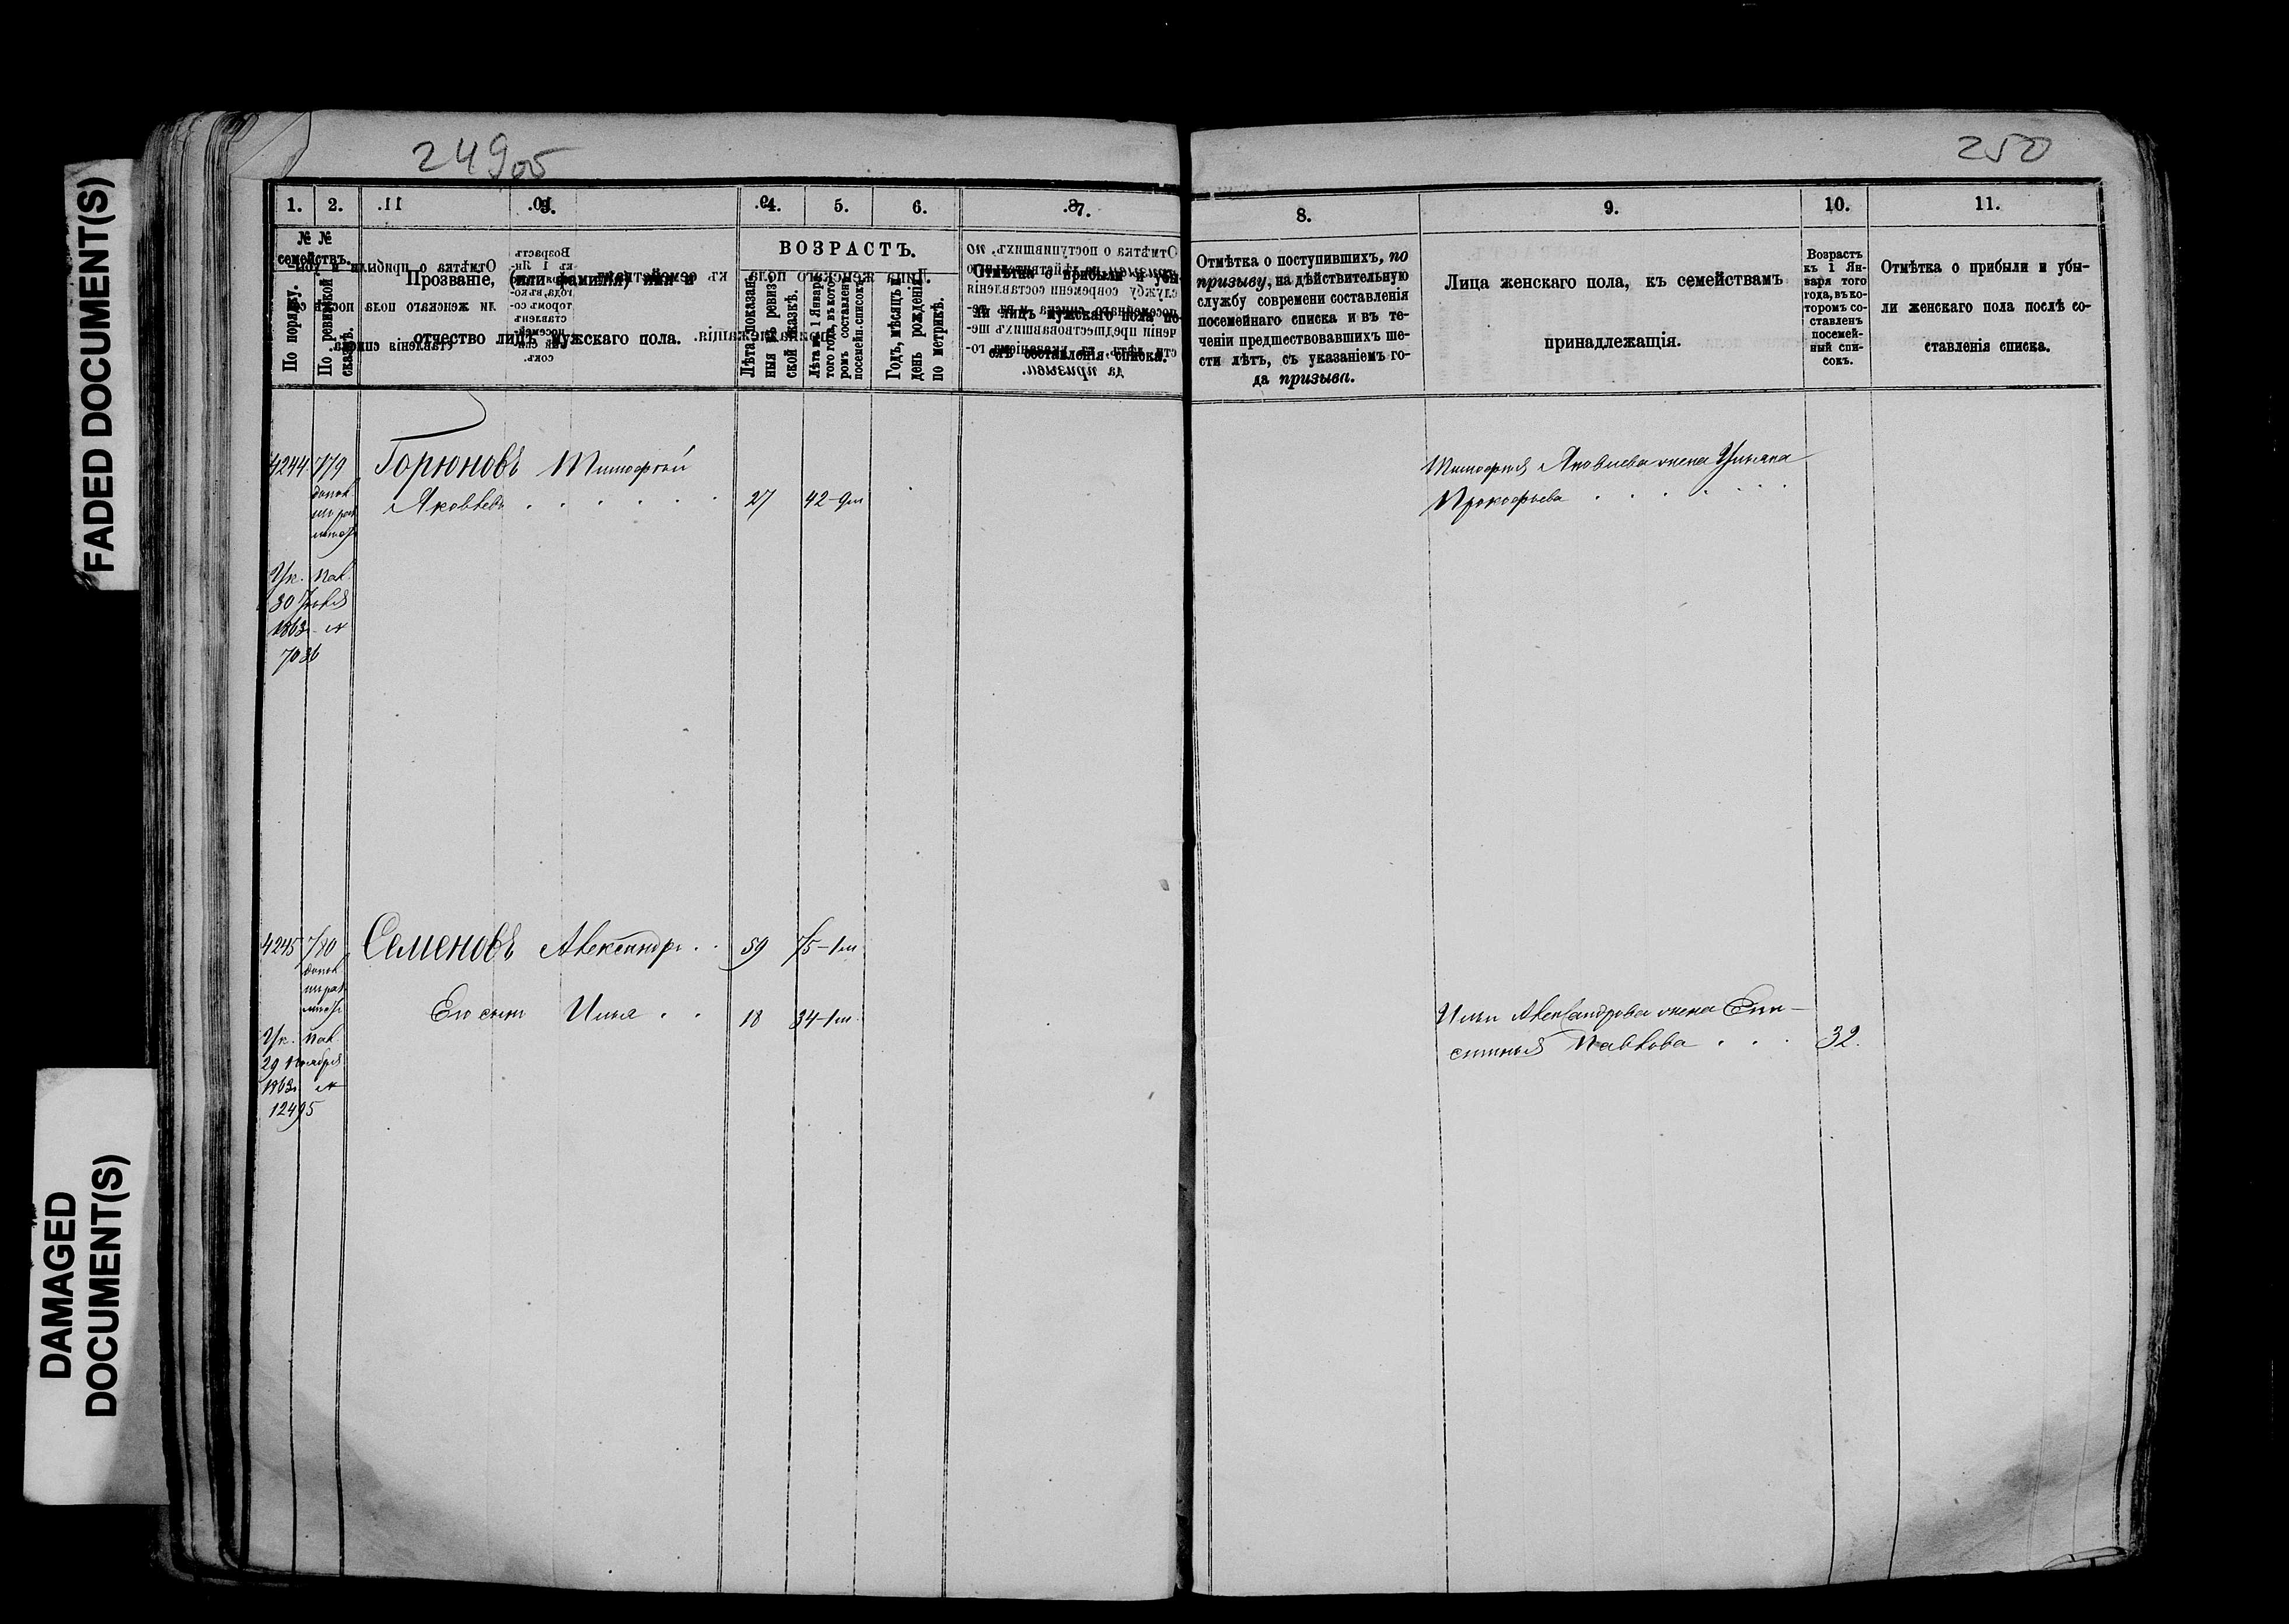 FADED DOCUMENT(S)
DAMAGED
DOCUMENT(S)
249об
1. 2. 3. 4. 5. 6. 7.
№ №
семействъ.
По порядку.
По ревизской
сказкѣ.
Прозваніе, (или фамилія) имя и
отчество лицъ мужскаго пола.
ВОЗРАСТЪ.
Лѣта, показан-
ныя въ ревиз-
ской сказкѣ.
Лѣта къ 1 Января
того года, въ кото-
ромъ составленъ
посемейн. списокъ.
Годъ, мѣсяцъ и
день рожденія
по метрикѣ.
Отмѣтка о прибыли и убы-
ли лицъ мужскаго пола по-
слѣ составленія списка.
4244 779 Горюновъ Тимофѣй
Яковлевъ 27 42-9м
Ук. Пал.
30
1863 №
7036
4245 780 Семеновъ Александръ 59 75-1м
Его сынъ Илья 18 34-1м
Ук. Пал.
29 Ноября
1863 №
12495
250
8. 9. 10. 11.
Отмѣтка о поступившихъ, по
призыву, на дѣйствительную
службу современи составленія
посемейнаго списка и въ те-
ченіи предшествовавшихъ ше-
сти лѣтъ, съ указаніемъ го-
да призыва.
Лица женскаго пола, къ семействамъ
принадлежащія.
Возрастъ
къ 1 Ян-
варя того
года, въ ко-
торомъ со-
ставленъ
посемей-
ный спи-
сокъ.
Отмѣтка о прибыли и убы-
ли женскаго пола послѣ со-
ставленія списка.
Тимофея Яковлева жена Ульяна
Прокофьева
Ильи Александрова жена
Павлова 32.